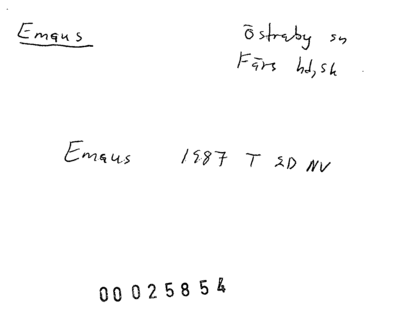 Emaus
Östraby sn
Färs hd, Sk
Emaus 1987 T 2D NV
00025854